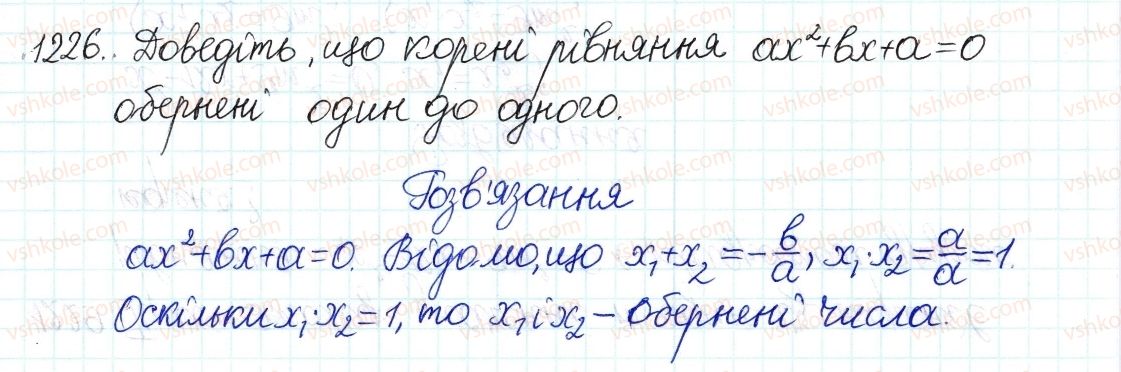 1226. Доведіть, що корені рівняння ax²+bx+a=0
обернені один до одного.
Розв'язання
ax²+bx+a=0. Відомо, що x₁+x₂=-b/a, x₁·x₂=a/a=1.
Оскільки x₁·x₂=1, то x₁ і x₂ - обернені числа.